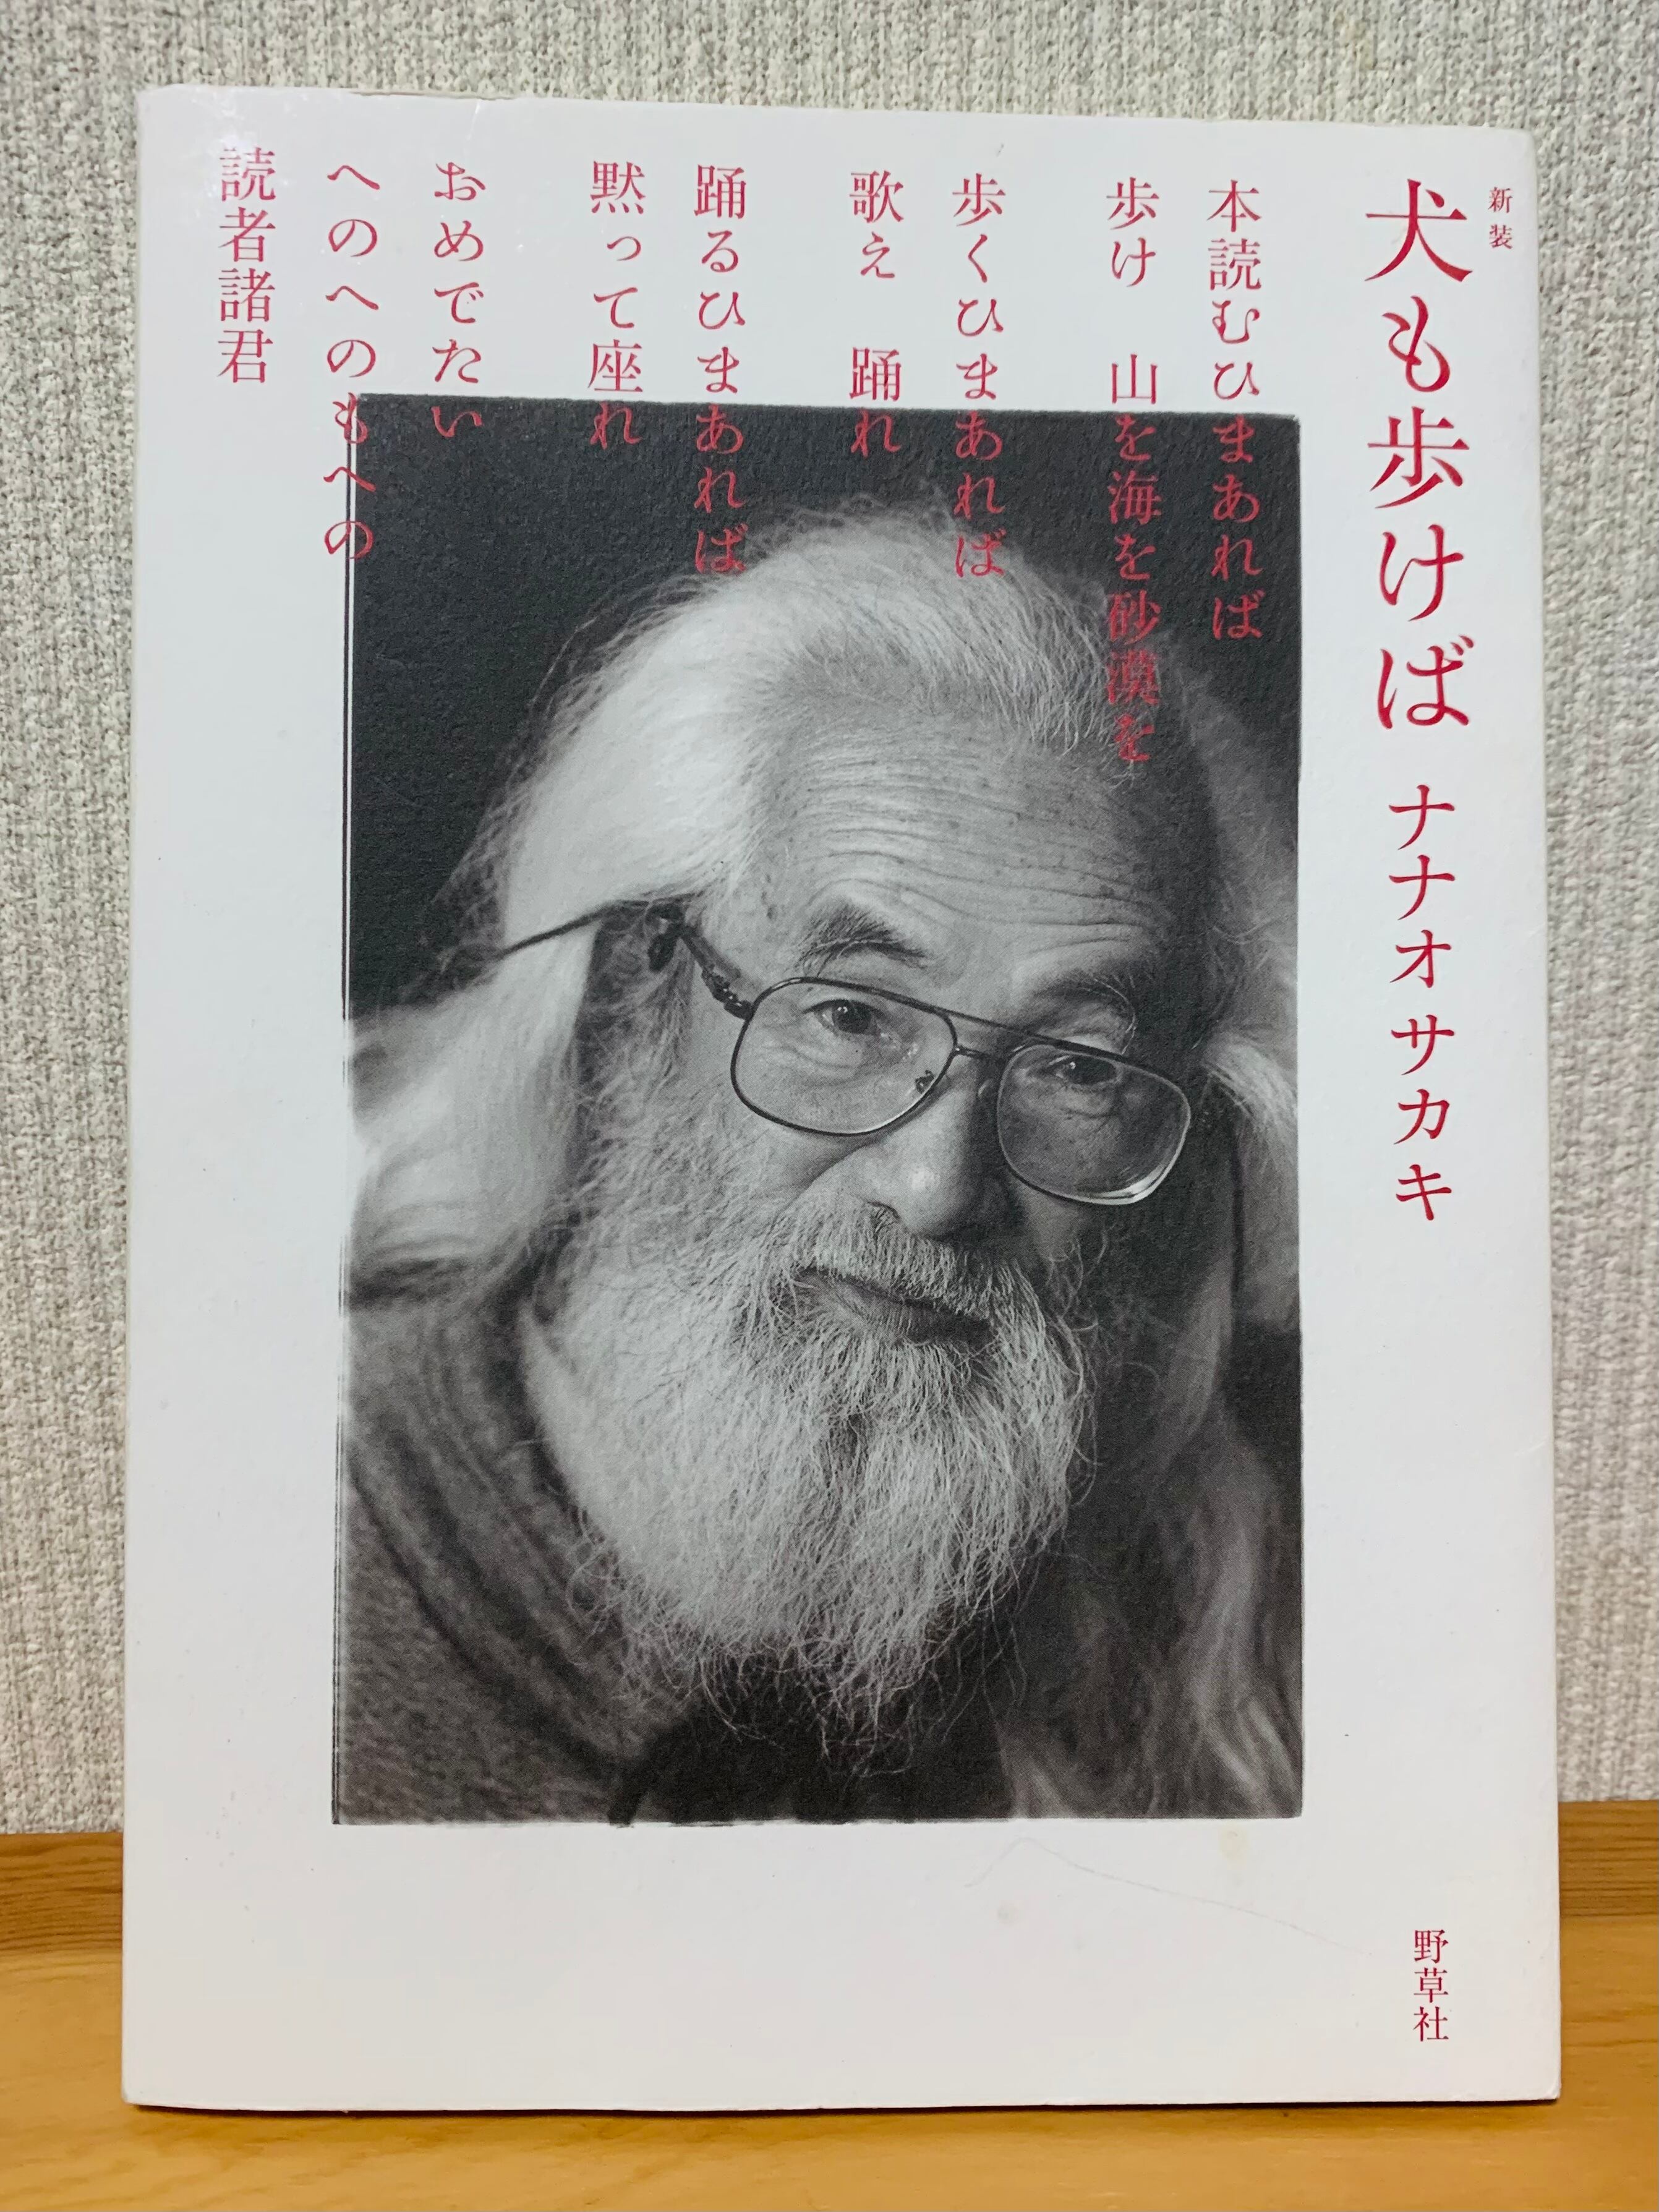 新装
犬も歩けば ナナオサカキ
本読むひまあれば
歩け 山を海を砂漠を
歩くひまあれば
歌え 踊れ
踊るひまあれば
黙って座れ
おめでたい
へのへのもへの
読者諸君
野草社